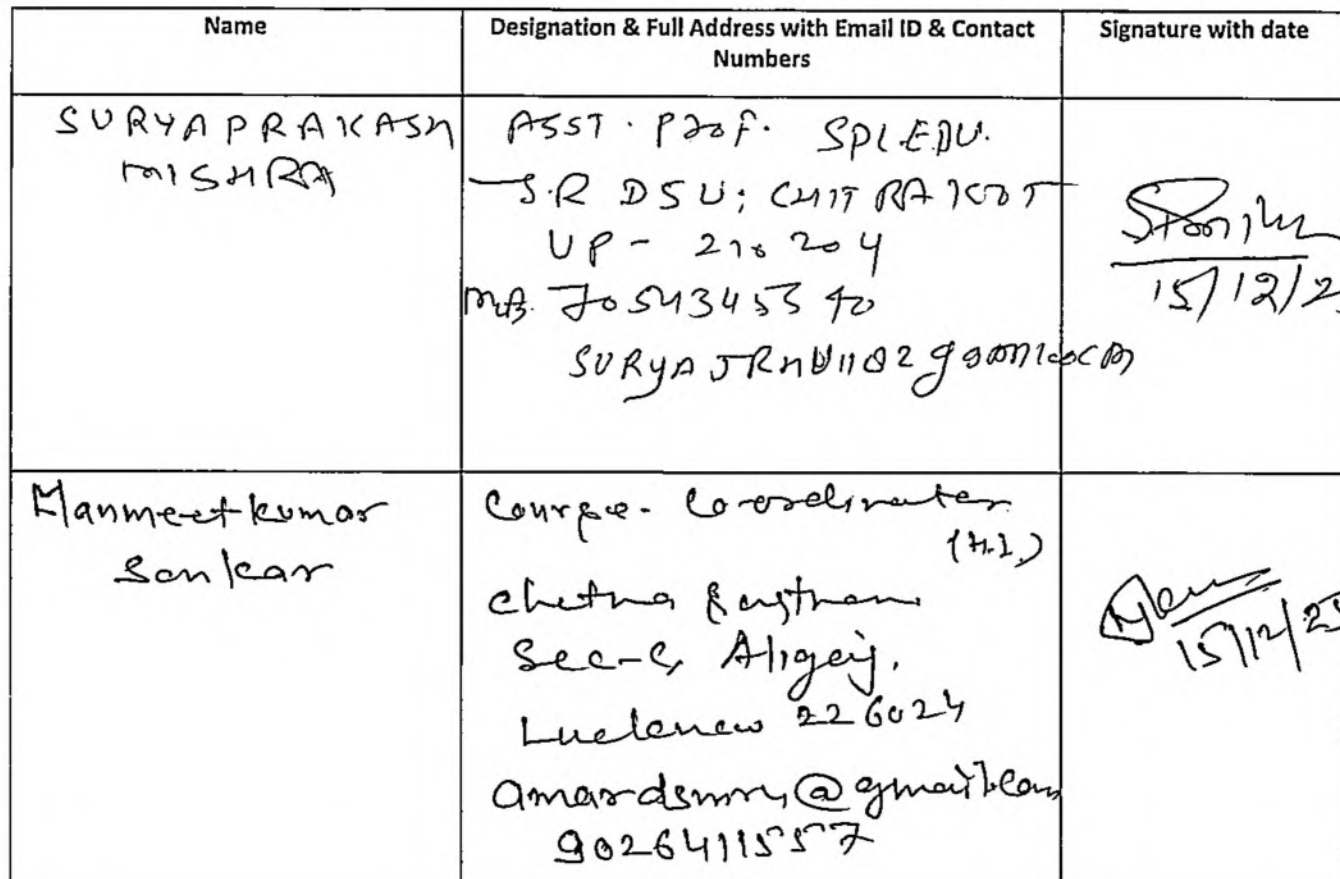 Name
Designation & Full Address with Email ID & Contact
Numbers
Signature with date
SURYA PRAKASH
MISHRA
ASST. Prof. SPL.EDU.
J.R DSU; CHITRAKOOT
UP - 210204
MB.
15/12/2
Manmeet kumar
Course. Co-ordinator
(H.I.)
Chetna
Sec-C, Aligej,
Lucknow 226024
@gmail.com
9026411557
15/12/25